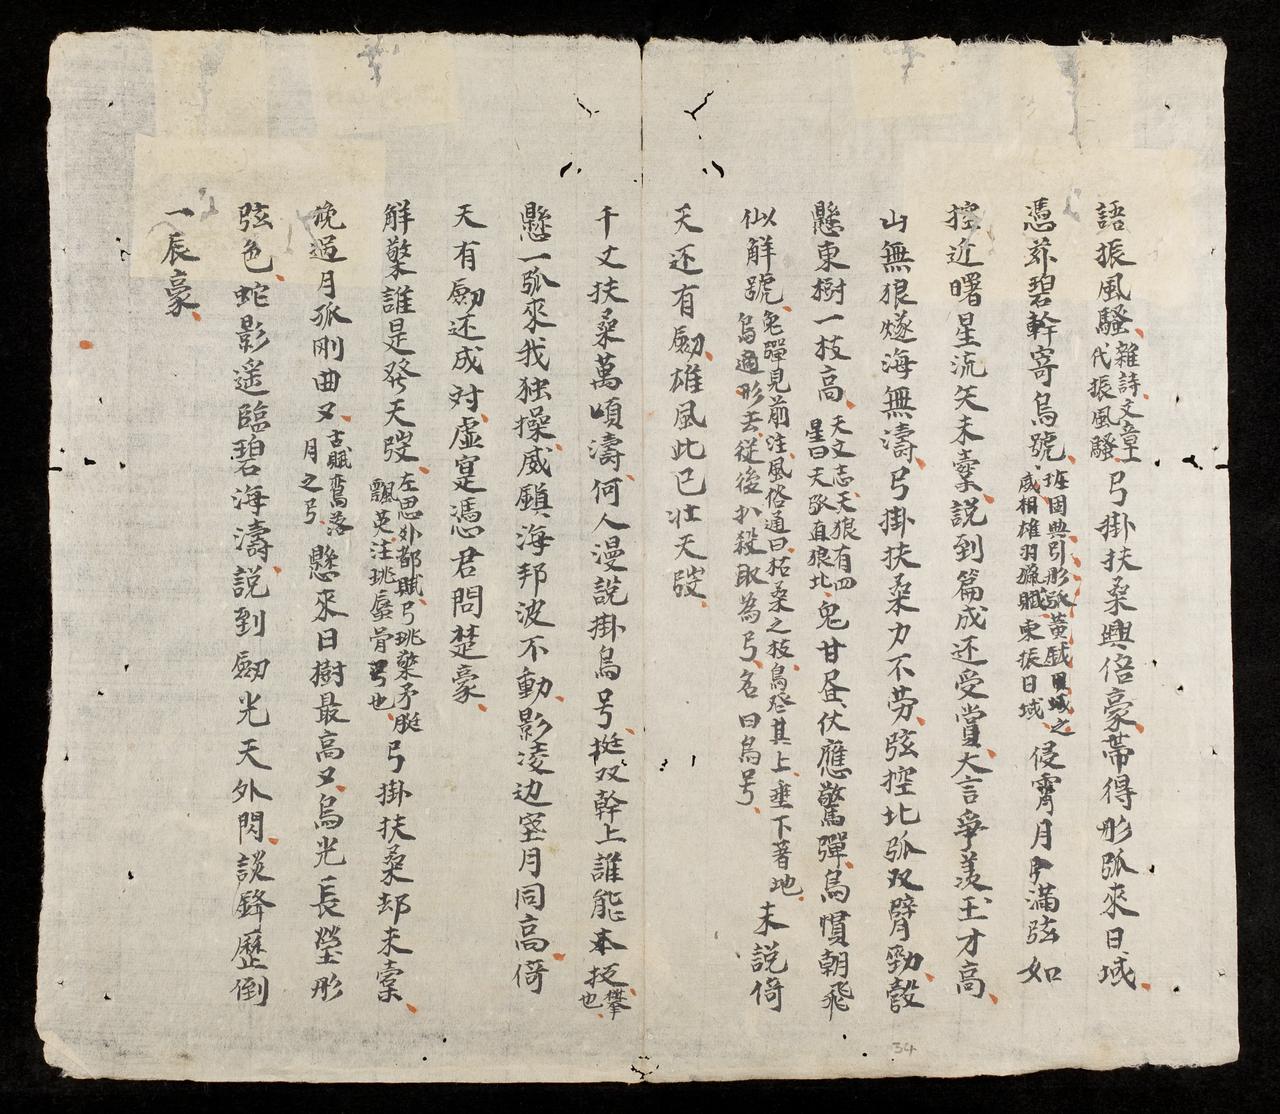 語振風騷雜詩文章一代振風騷弓掛扶桑興倍豪帶得彤弧來日域
憑茲碧幹寄烏號班固典引彤弧黃戯日域之威相雄羽獵賦東振日域侵霄月中滿弦如
控近曙星流矢未櫜說到篇成还受賞大言爭羡玉才高
山無狼燧海無濤弓掛扶桑力不劳弦控北弧双臂勁彀
懸東樹一枝高天文志天狼有四星曰天弧直狼北鬼甘昼伏應驚彈烏慣朝飛
似解號兔彈見前注風俗通曰柘桑之枝烏登其上垂下著地烏適形去従後扒殺取為弓名曰烏号未說倚
天还有劒雄風此已壮天弢
千丈扶桑萬頃濤何人漫說掛烏号挺双幹上誰能本扳攀也
懸一弧來我独操威鎮海邦波不動影凌边塞月同高倚
天有劒还成対虚寔憑君問楚豪
解檠誰是発天弢左思外都賦弓珧檠矛飄英注珧蜃骨弓也弓掛扶桑却未櫜
晚過月孤刚曲又古賦鸞落月之弓懸來日樹最高又烏光長瑩形
弦色蛇影遙臨碧海濤說到劒光天外閃談鋒歷倒
一辰豪
34